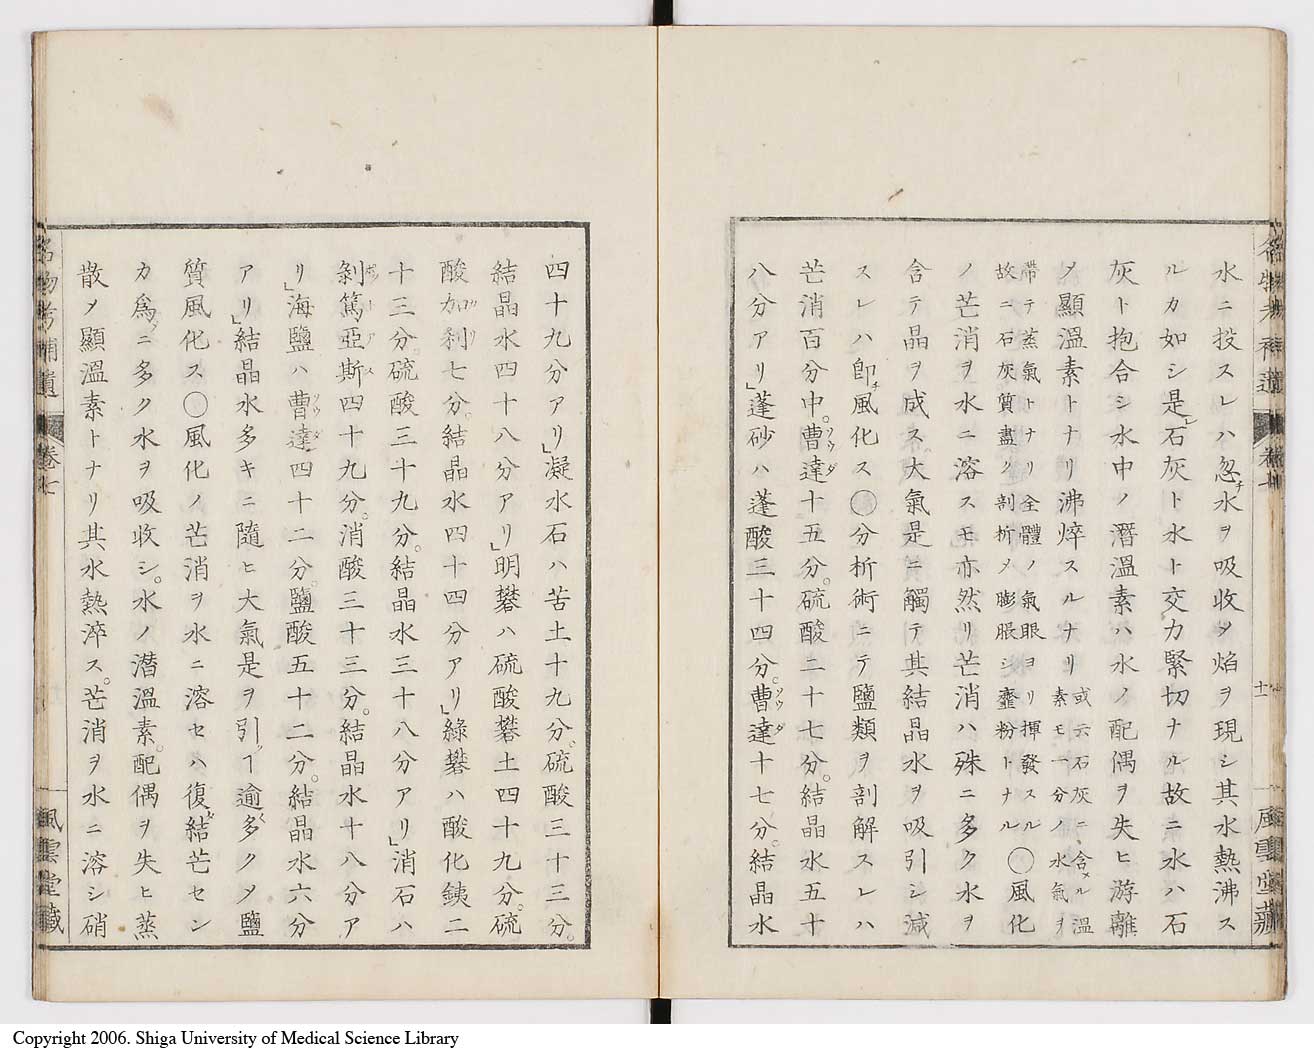 水ニ投スレハ忽チ水ヲ吸收ノ焰ヲ現シ其水熱沸ス
ルカ如シ是レ石灰ト水ト交力緊切ナル故ニ水ハ石
灰ト抱合シ水中ノ潛温素ハ水ノ配偶ヲ失ヒ游離
メ顯温素トナリ沸焠スルナリ或云石灰ニ含メル温素モ一分ノ水氣ヲ
帶テ蒸氣トナリ全體ノ氣眼ヨリ揮發スル
故ニ石灰質盡ク剖析メ膨脹シ虀粉トナル〇風化
ノ芒消ヲ水ニ溶スモ亦然リ芒消ハ殊ニ多ク水ヲ
含テ晶ヲ成ス大氣是ニ觸テ其結晶水ヲ吸引シ減
スレハ卽チ風化ス〇分析術ニテ鹽類ヲ剖解スレハ
芒消百分中。曹達ソウダ十五分。硫酸二十七分。結晶水五十
八分アリ」蓬砂ハ蓬酸三十四分。曹達ソウダ十七分。結晶水
四十九分アリ」凝水石ハ苦土十九分。硫酸三十三分。
結晶水四十八分アリ」明礬ハ硫酸礬土四十九分。硫
酸加利カリ七分。結晶水四十四分アリ」綠礬ハ酸化銕二
十三分。硫酸三十九分。結晶水三十八分アリ」消石ハ
剝篤亞斯ポットアス四十九分。消酸三十三分。結晶水十八分ア
リ」海鹽ハ曹達ソウダ四十二分。鹽酸五十二分。結晶水六分
アリ」結晶水多キニ隨ヒ大氣是ヲ引クヿ逾多クメ鹽
質風化ス〇風化ノ芒消ヲ水ニ溶セハ復結芒セン
カ爲ニ多ク水ヲ吸收シ。水ノ潛温素。配偶ヲ失ヒ蒸
散メ顯温素トナリ其水熱淬ス。芒消ヲ水ニ溶シ硝
名物考補遺
卷七
十一
風雲堂藏
Copyright 2006. Shiga University of Medical Science Library